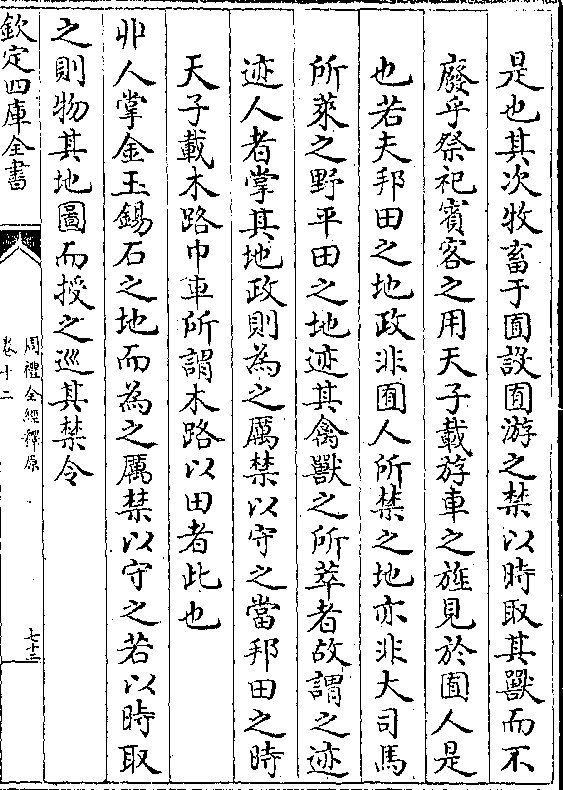 是也其次牧畜于囿設囿游之禁以時取其獸而不
廢乎祭祀賓客之用天子載斿車之旌見於囿人是
也若夫邦田之地政非囿人所禁之地亦非大司馬
所萊之野平田之地迹其禽獸之所萃者故謂之迹
迹人者掌其地政則為之厲禁以守之當邦田之時
天子載木路巾車所謂木路以田者此也
丱人掌金玉錫石之地而為之厲禁以守之若以時取
之則物其地圖而授之巡其禁令
欽定四庫全書
周禮全經釋原
卷十二
七十三